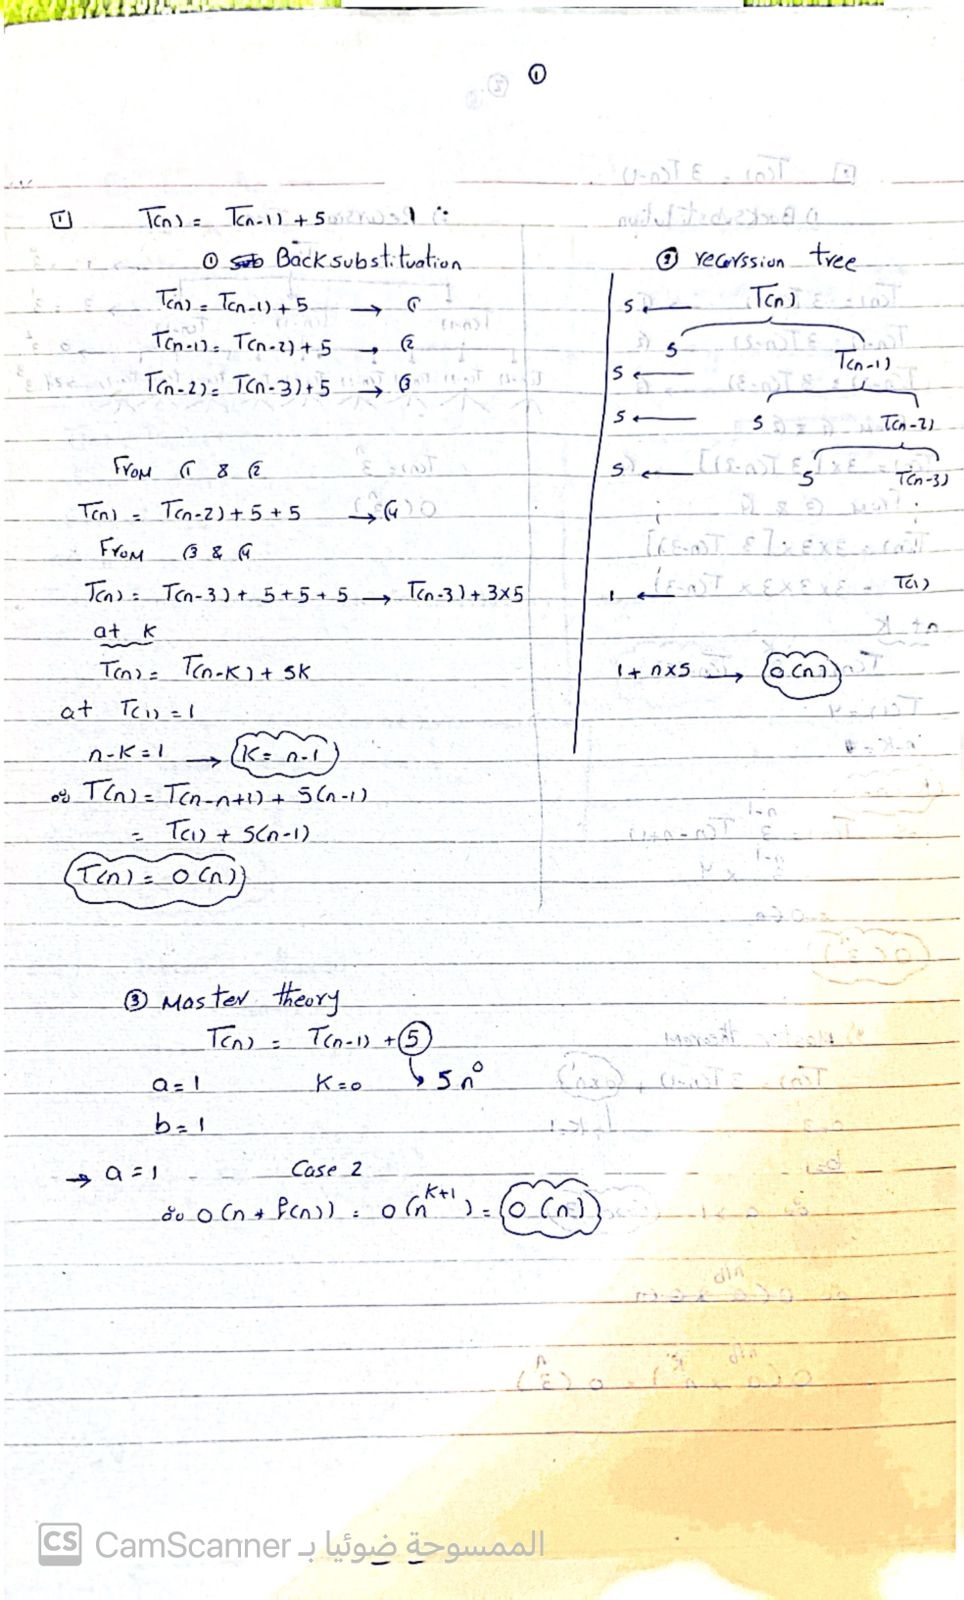 ①
1 T(n) = T(n-1) + 5
① Back substituation
T(n) = T(n-1) + 5 → ①
T(n-1) = T(n-2) + 5 → ②
T(n-2) = T(n-3) + 5 → ③
From ① & ②
T(n) = T(n-2) + 5 + 5 → ④
From ③ & ④
T(n) = T(n-3) + 5 + 5 + 5 → T(n-3) + 3×5
at K
T(n) = T(n-K) + 5K
at T(1) = 1
n-K = 1 → K = n-1
∴ T(n) = T(n-n+1) + 5(n-1)
= T(1) + 5(n-1)
T(n) = O(n)
② recurssion tree
5 ← T(n)
5 T(n-1)
5 ←
5 ← 5 T(n-2)
5 ← 5 T(n-3)
1 ← T(1)
1 + n×5 → O(n)
③ Master theory
T(n) = T(n-1) + 5
a = 1 K = 0 ↳ 5n⁰
b = 1
→ a = 1 Case 2
∴ O(n * f(n)) = O(n^K+1) = O(n)
CS CamScanner الممسوحة ضوئيا بـ